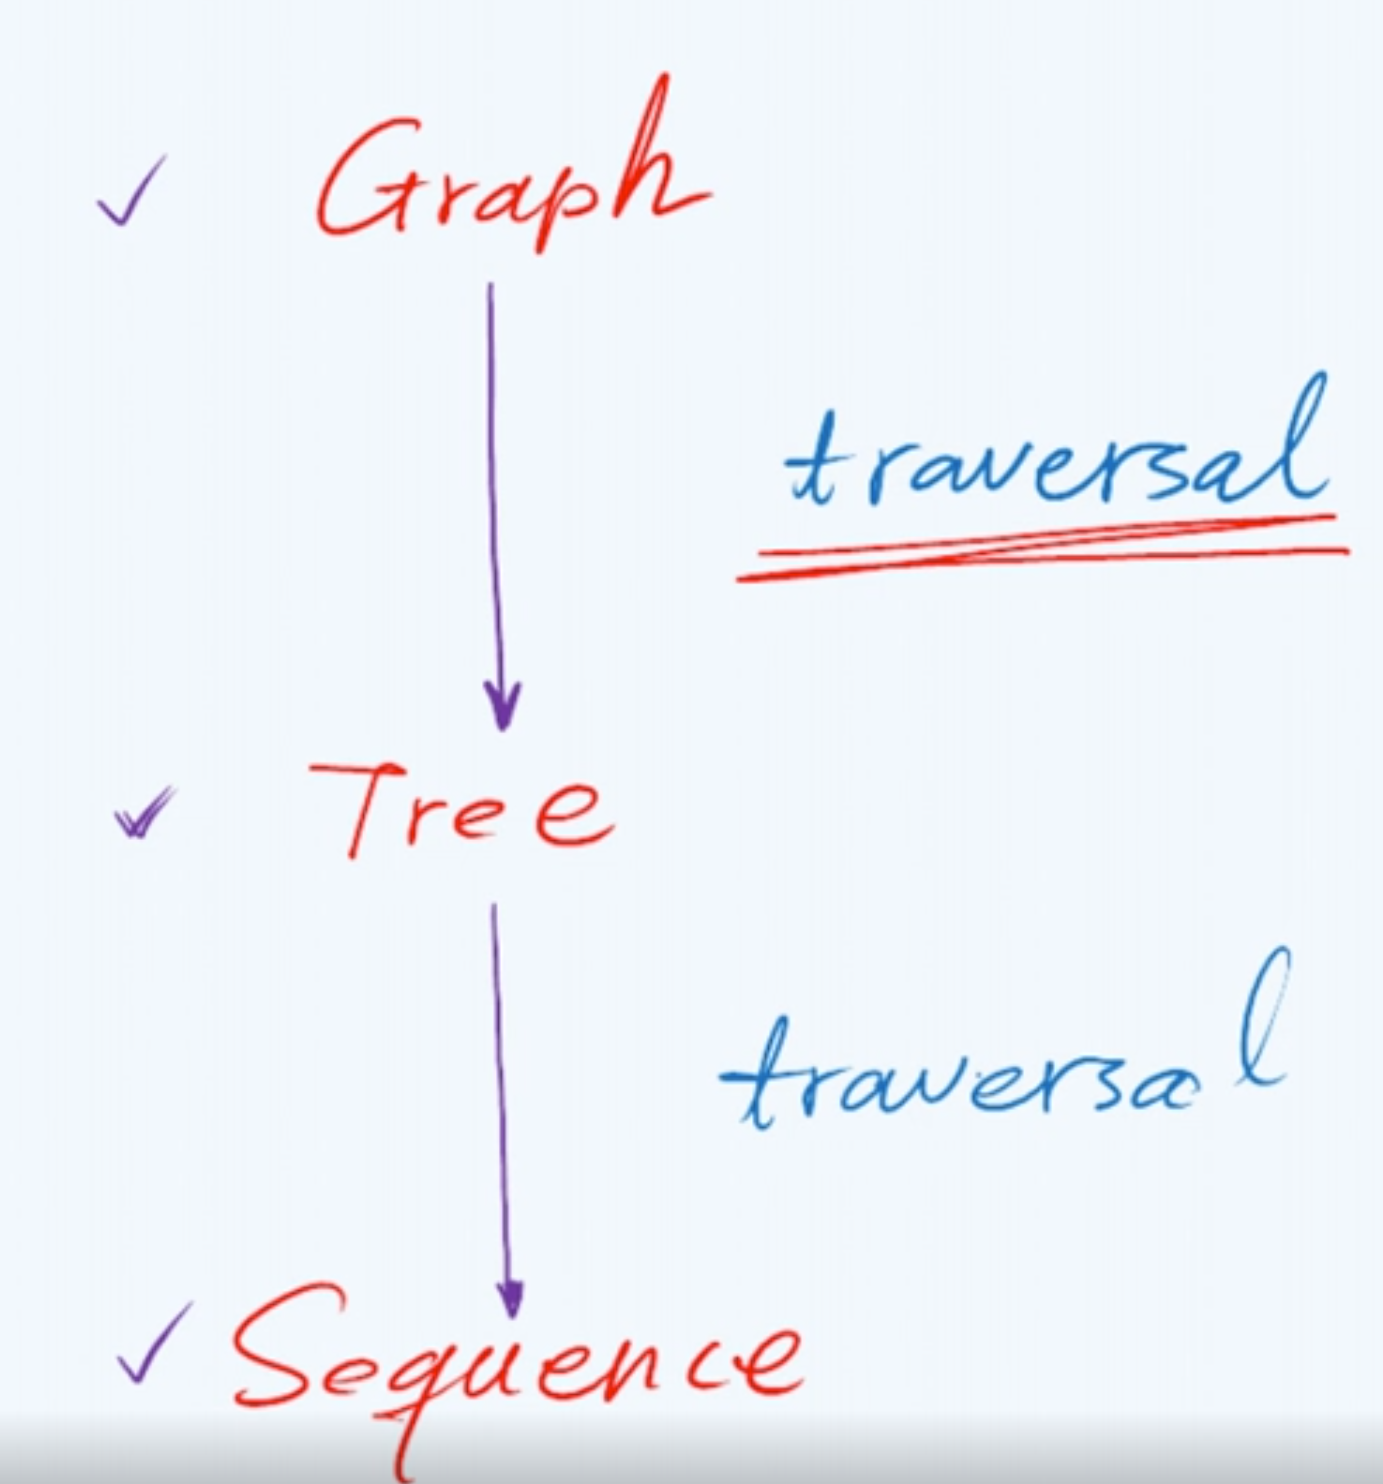 Graph
traversal
Tree
traversal
Sequence